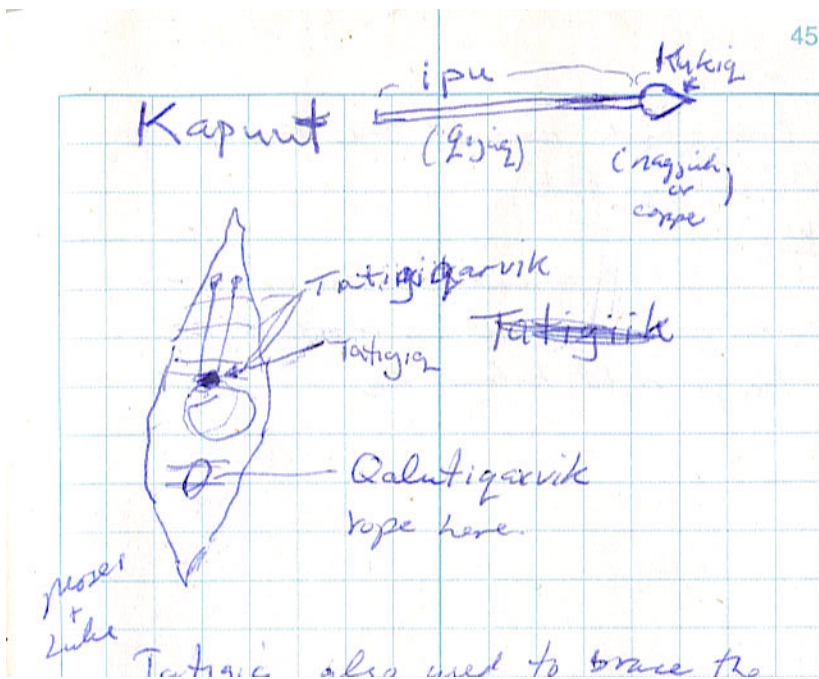 45
ipu Kukiq
Kapuut
(Qijuq)
or
coppe
Tatigiqarvik
Tatigiik
Tatigiq
Qalutiqarvik
rope here.
Moses
+
Luke
Tatigiq also used to brace the